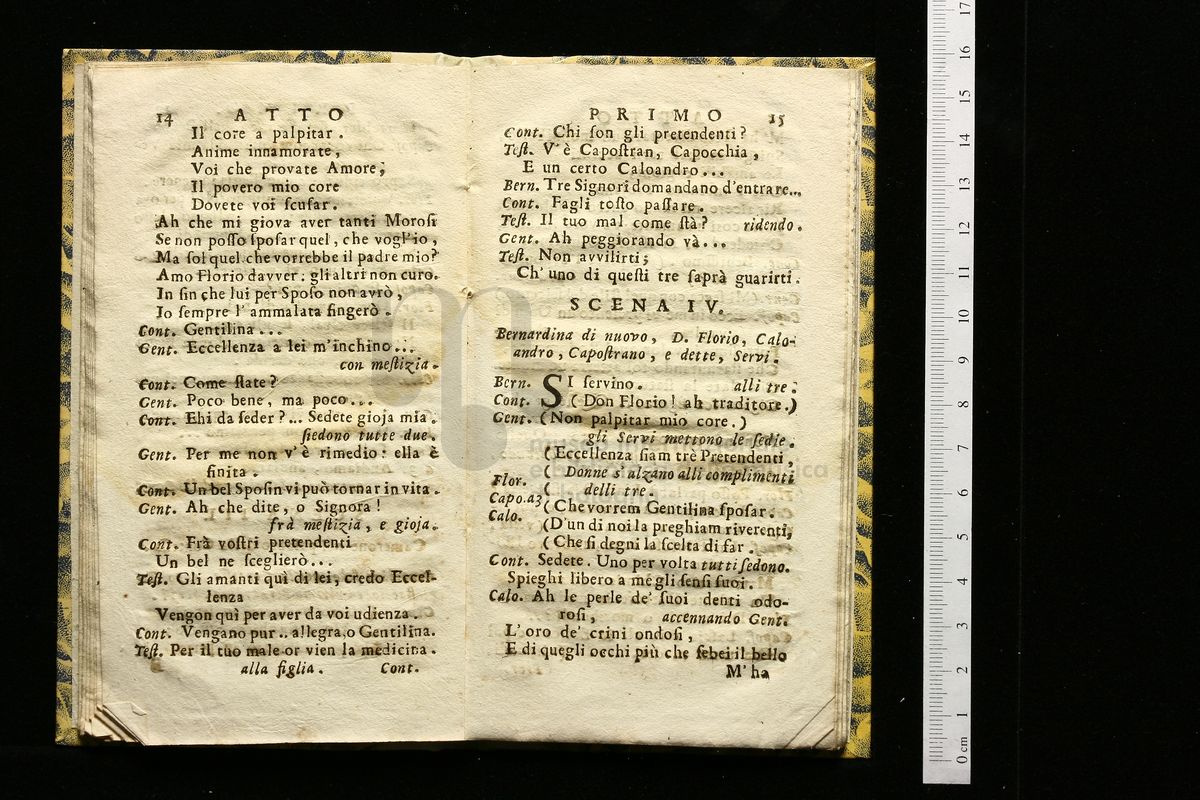 14 ATTO
Il core a palpitar.
Anime innamorate,
Voi che provate Amore;
Il povero mio core
Dovete voi scusar.
Ah che mi giova aver tanti Morosi
Se non posso sposar quel, che voglio,
Ma sol quel che vorrebbe il padre mio?
Amo Florio davver: gli altri non curo.
In sin che lui per Sposo non avrò,
Io sempre l'ammalata fingerò.
Cont. Gentilina...
Gent. Eccellenza a lei m'inchino...
con mestizia.
Cont. Come state?
Gent. Poco bene, ma poco...
Cont. Ehi da seder?... Sedete gioja mia.
siedono tutte due.
Gent. Per me non v'è rimedio: ella è
finita.
Cont. Un bel Sposin vi può tornar in vita.
Gent. Ah che dite, o Signora!
frà mestizia, e gioja.
Cont. Frà vostri pretendenti
Un bel ne sceglierò...
Test. Gli amanti quì di lei, credo Eccel-
lenza
Vengon quì per aver da voi udienza.
Cont. Vengano pur.. allegra, o Gentilina.
Test. Per il tuo male or vien la medicina.
alla figlia. Cont.
PRIMO 15
Cont. Chi son gli pretendenti?
Test. V'è Capostran, Capocchia,
E un certo Caloandro...
Bern. Tre Signori domandano d'entrare...
Cont. Fagli tosto passare.
Test. Il tuo mal come stà? ridendo.
Gent. Ah peggiorando và...
Test. Non avvilirti;
Ch'uno di questi tre saprà guarirti.
SCENA IV.
Bernardina di nuovo, D. Florio, Calo-
andro, Capostrano, e dette, Servi.
Bern. SI servino. alli tre.
Cont. (Don Florio! ah traditore.)
Gent. (Non palpitar mio core.)
gli Servi mettono le sedie.
(Eccellenza siam trè Pretendenti,
Flor. ( Donne s'alzano alli complimenti
( delli tre.
Capo.a3 (Che vorrem Gentilina sposar.
Calo. (D'un di noi la preghiam riverenti,
(Che si degni la scelta di far.
Cont. Sedete. Uno per volta tutti sedono.
Spieghi libero a mè gli sensi suoi.
Calo. Ah le perle de' suoi denti odo-
rosi, accennando Gent.
L'oro de' crini ondosi,
E di quegli occhi più che sebei il bello
M'ha